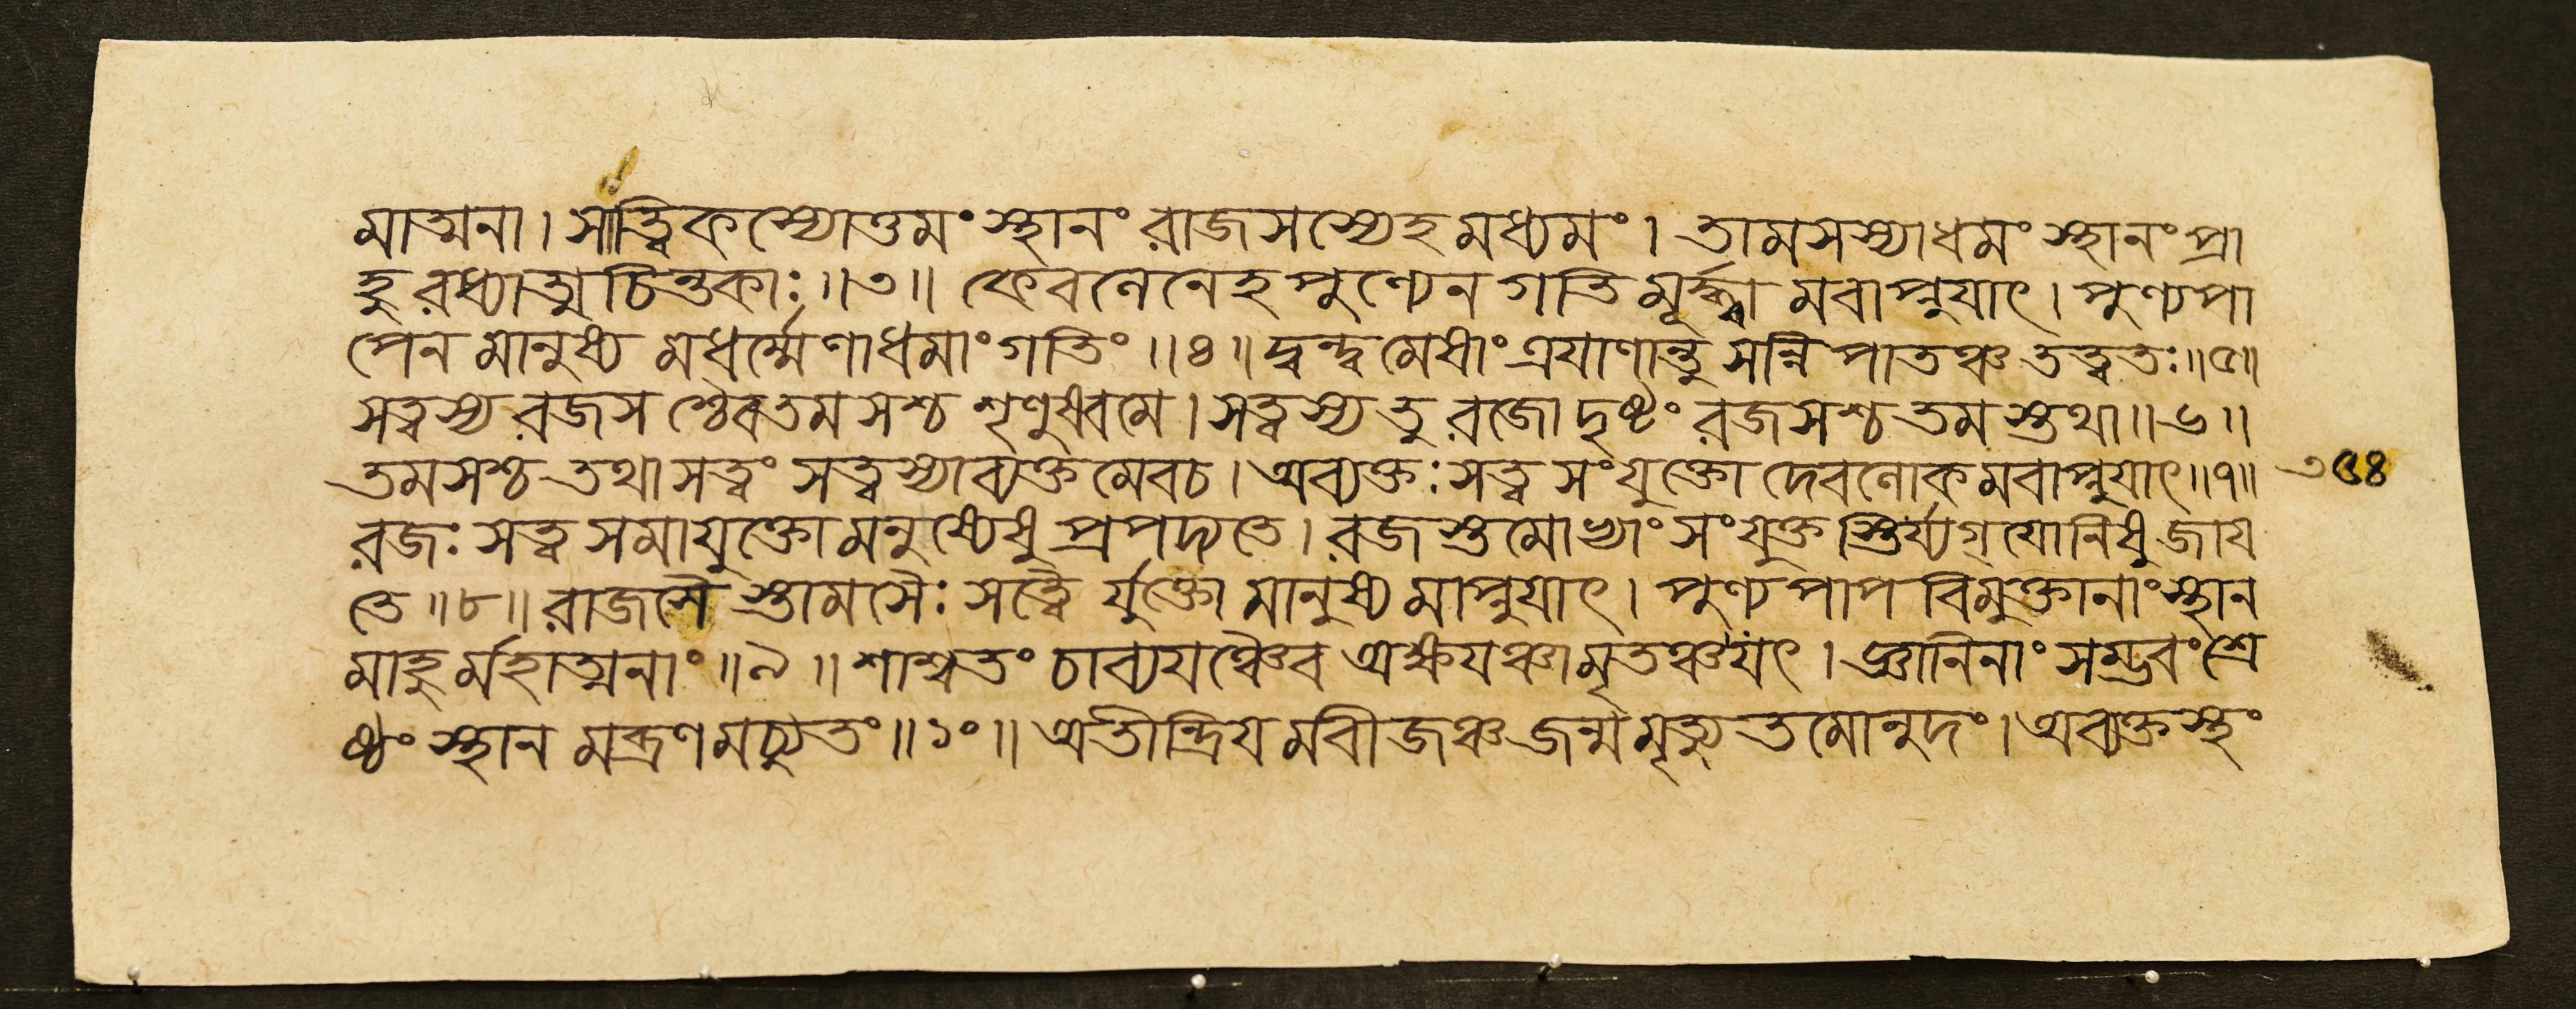 মাত্মনা। সাত্ত্বিকস্যোত্তমং স্থানং রাজসস্যেহ মধ্যমং। তামসস্যাধমং স্থানং প্রা
হুরধ্যাত্মচিন্তকাঃ॥৩॥ কেবলেনেহ পুণ্যেন গতিমূর্দ্ধ্বামবাপ্নুযাৎ। পুণ্যপা
পেন মানুষ্য মধর্ম্মেণাধমাং গতিং॥৪॥ দ্বন্দ্বমেষাং ত্রযাণান্তু সন্নিপাতঞ্চ তত্ত্বতঃ॥৫॥
সত্ত্বস্য ৰজসশ্চৈব তমসশ্চ শৃণুষ্ব মে। সত্ত্বস্য তু ৰজো দৃষ্টং ৰজসশ্চ তমস্তথা॥৬॥
তমসশ্চ তথা সত্ত্বং সত্ত্বস্যাব্যক্তমেবচ। অব্যক্তঃ সত্ত্ব সংযুক্তো দেবলোকমবাপ্নুযাৎ॥৭॥
৩৫৪
ৰজঃ সত্ত্ব সমাযুক্তো মনুষ্যেষু প্রপদ্যতে। ৰজস্তমোভ্যাং সংযুক্তস্তির্য্যগ্‌যোনিষু জায
তে॥৮॥ ৰাজসৈস্তামসৈঃ সত্ত্বৈর্যুক্তো মানুষ্যমাপ্নুযাৎ। পুণ্যপাপবিমুক্তানাং স্থান
মাহুর্মহাত্মনাং॥৯॥ শাশ্বতং চাব্যযঞ্চৈব অক্ষযঞ্চামৃতঞ্চযৎ। জ্ঞানিনাং সম্ভবং শ্রে
ষ্ঠং স্থানমব্রণমচ্যুতং॥১০॥ অতীন্দ্রিযমবীজঞ্চ জন্মমৃত্যুতমোনুদং। অব্যক্তস্থং